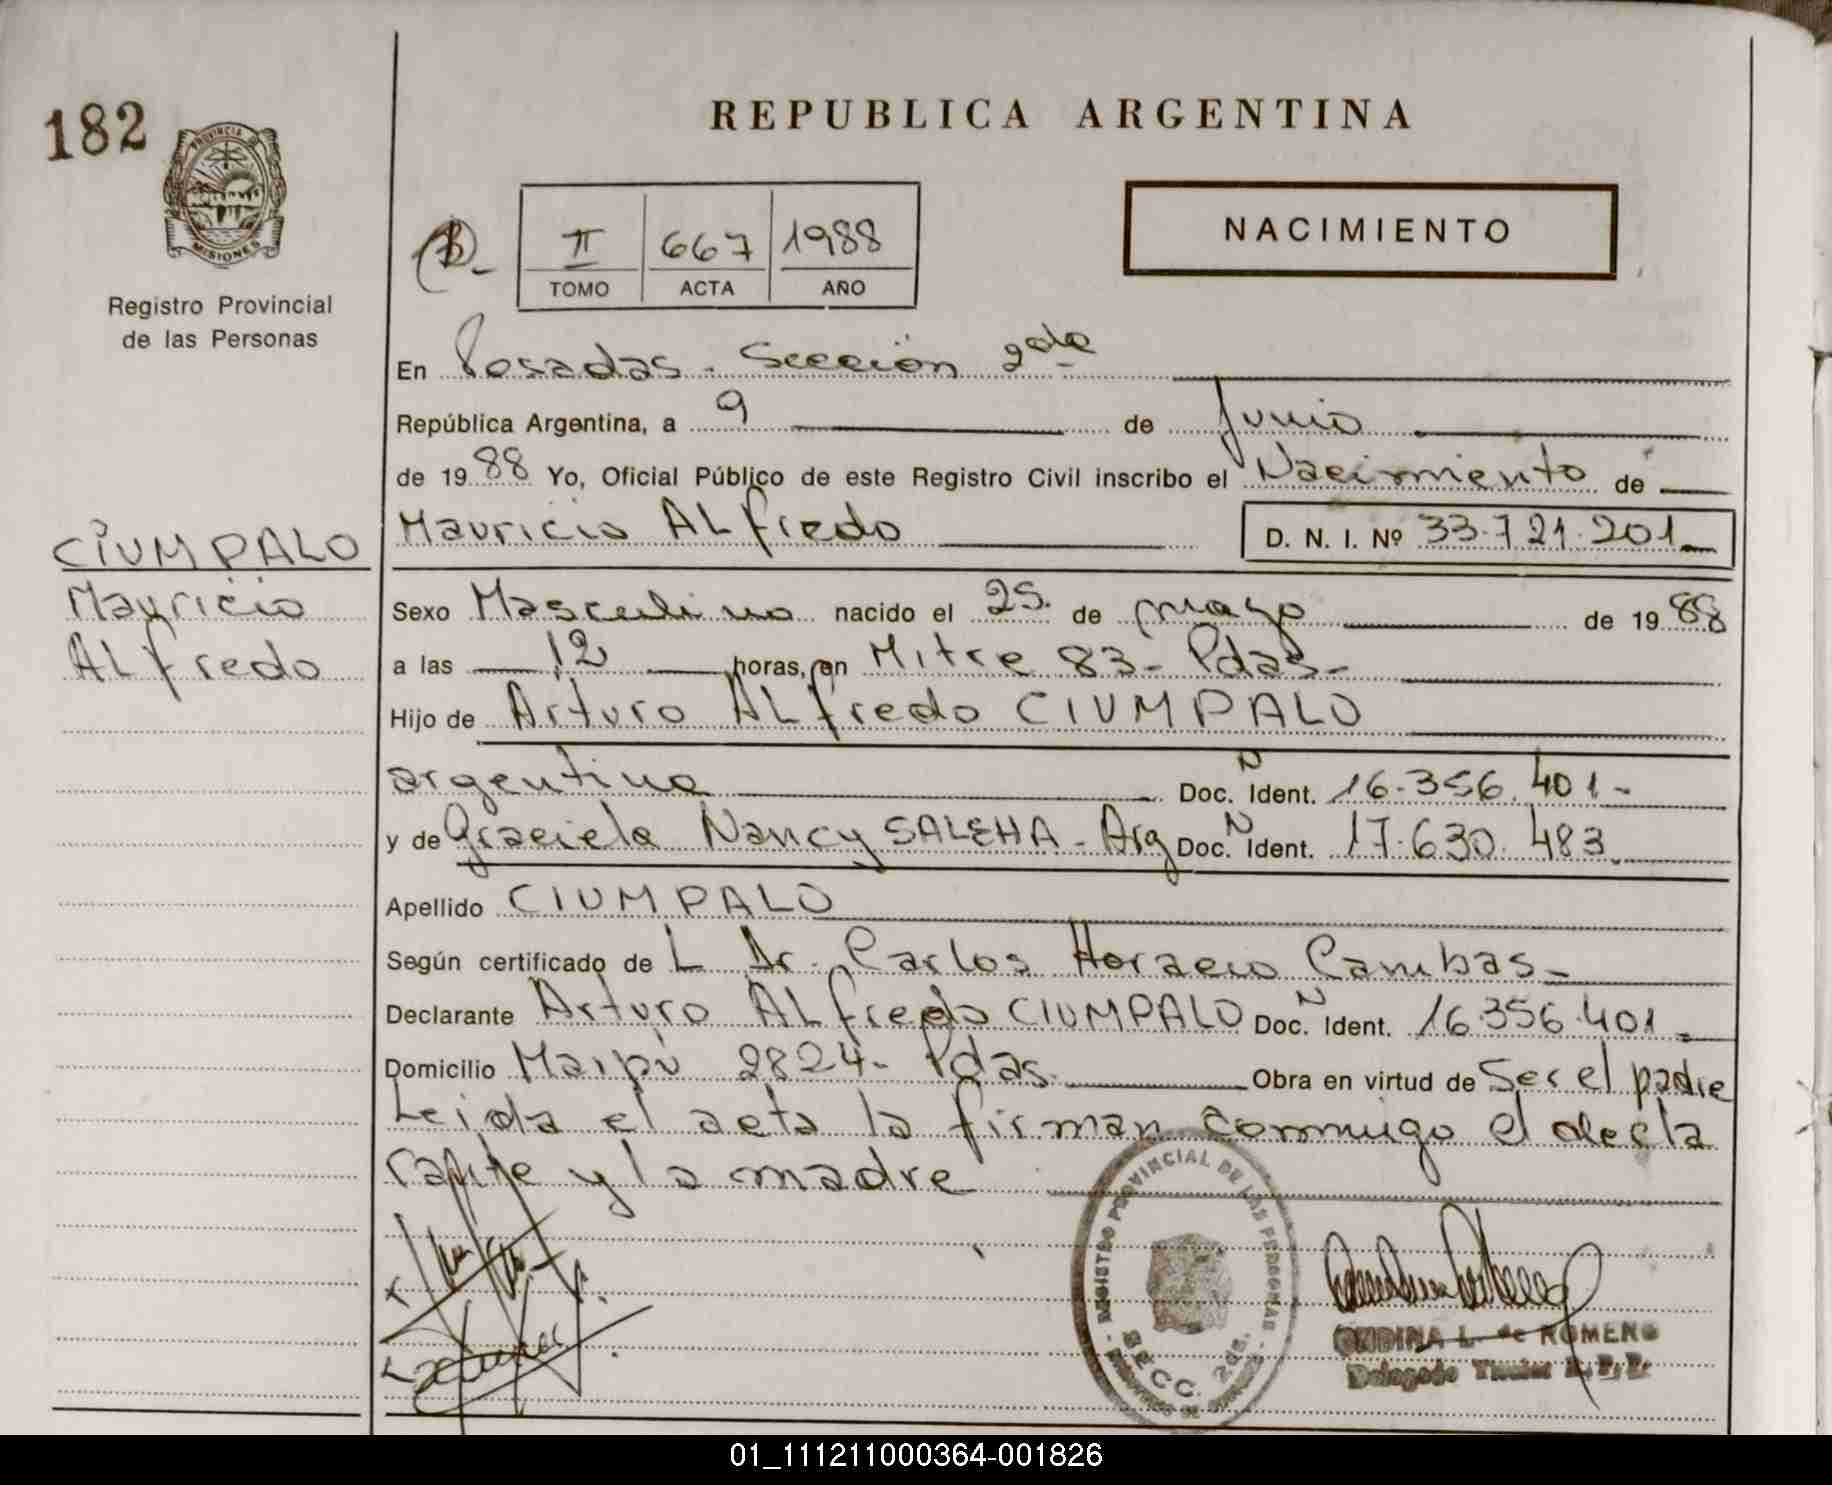 182
PROVINCIA
MISIONES
Registro Provincial
de las Personas
CIUMPALO
Mauricio
ALfredo
REPUBLICA ARGENTINA
NACIMIENTO
II 667 1988
TOMO ACTA AÑO
En Posadas. Sección 2da
República Argentina, a 9 de Junio
de 1988 Yo, Oficial Público de este Registro Civil inscribo el Nacimiento de
Mauricio ALfredo D. N. I. Nº 33.721.201
Sexo Masculino nacido el 25. de mayo de 1988
a las 12 horas, en Mitre 83- Pdas-
Hijo de Arturo ALfredo CIUMPALO
argentino Doc. N Ident. 16.356.401-
y de Graciela Nancy SALEHA - Arg Doc. N Ident. 17.630.483.
Apellido CIUMPALO
Según certificado de L Dr. Carlos Horacio Cambas-
Declarante Arturo ALfredo CIUMPALO Doc. N Ident. 16.356.401-
Domicilio Maipú 2824- Pdas. Obra en virtud de Ser el padre
Leida el acta la firman conmigo el decla
rante y la madre
REGISTRO PROVINCIAL DE LAS PERSONAS
SECC. 2da.
ONDINA L. de ROMERO
Delegado Titular R.P.P.
01_111211000364-001826